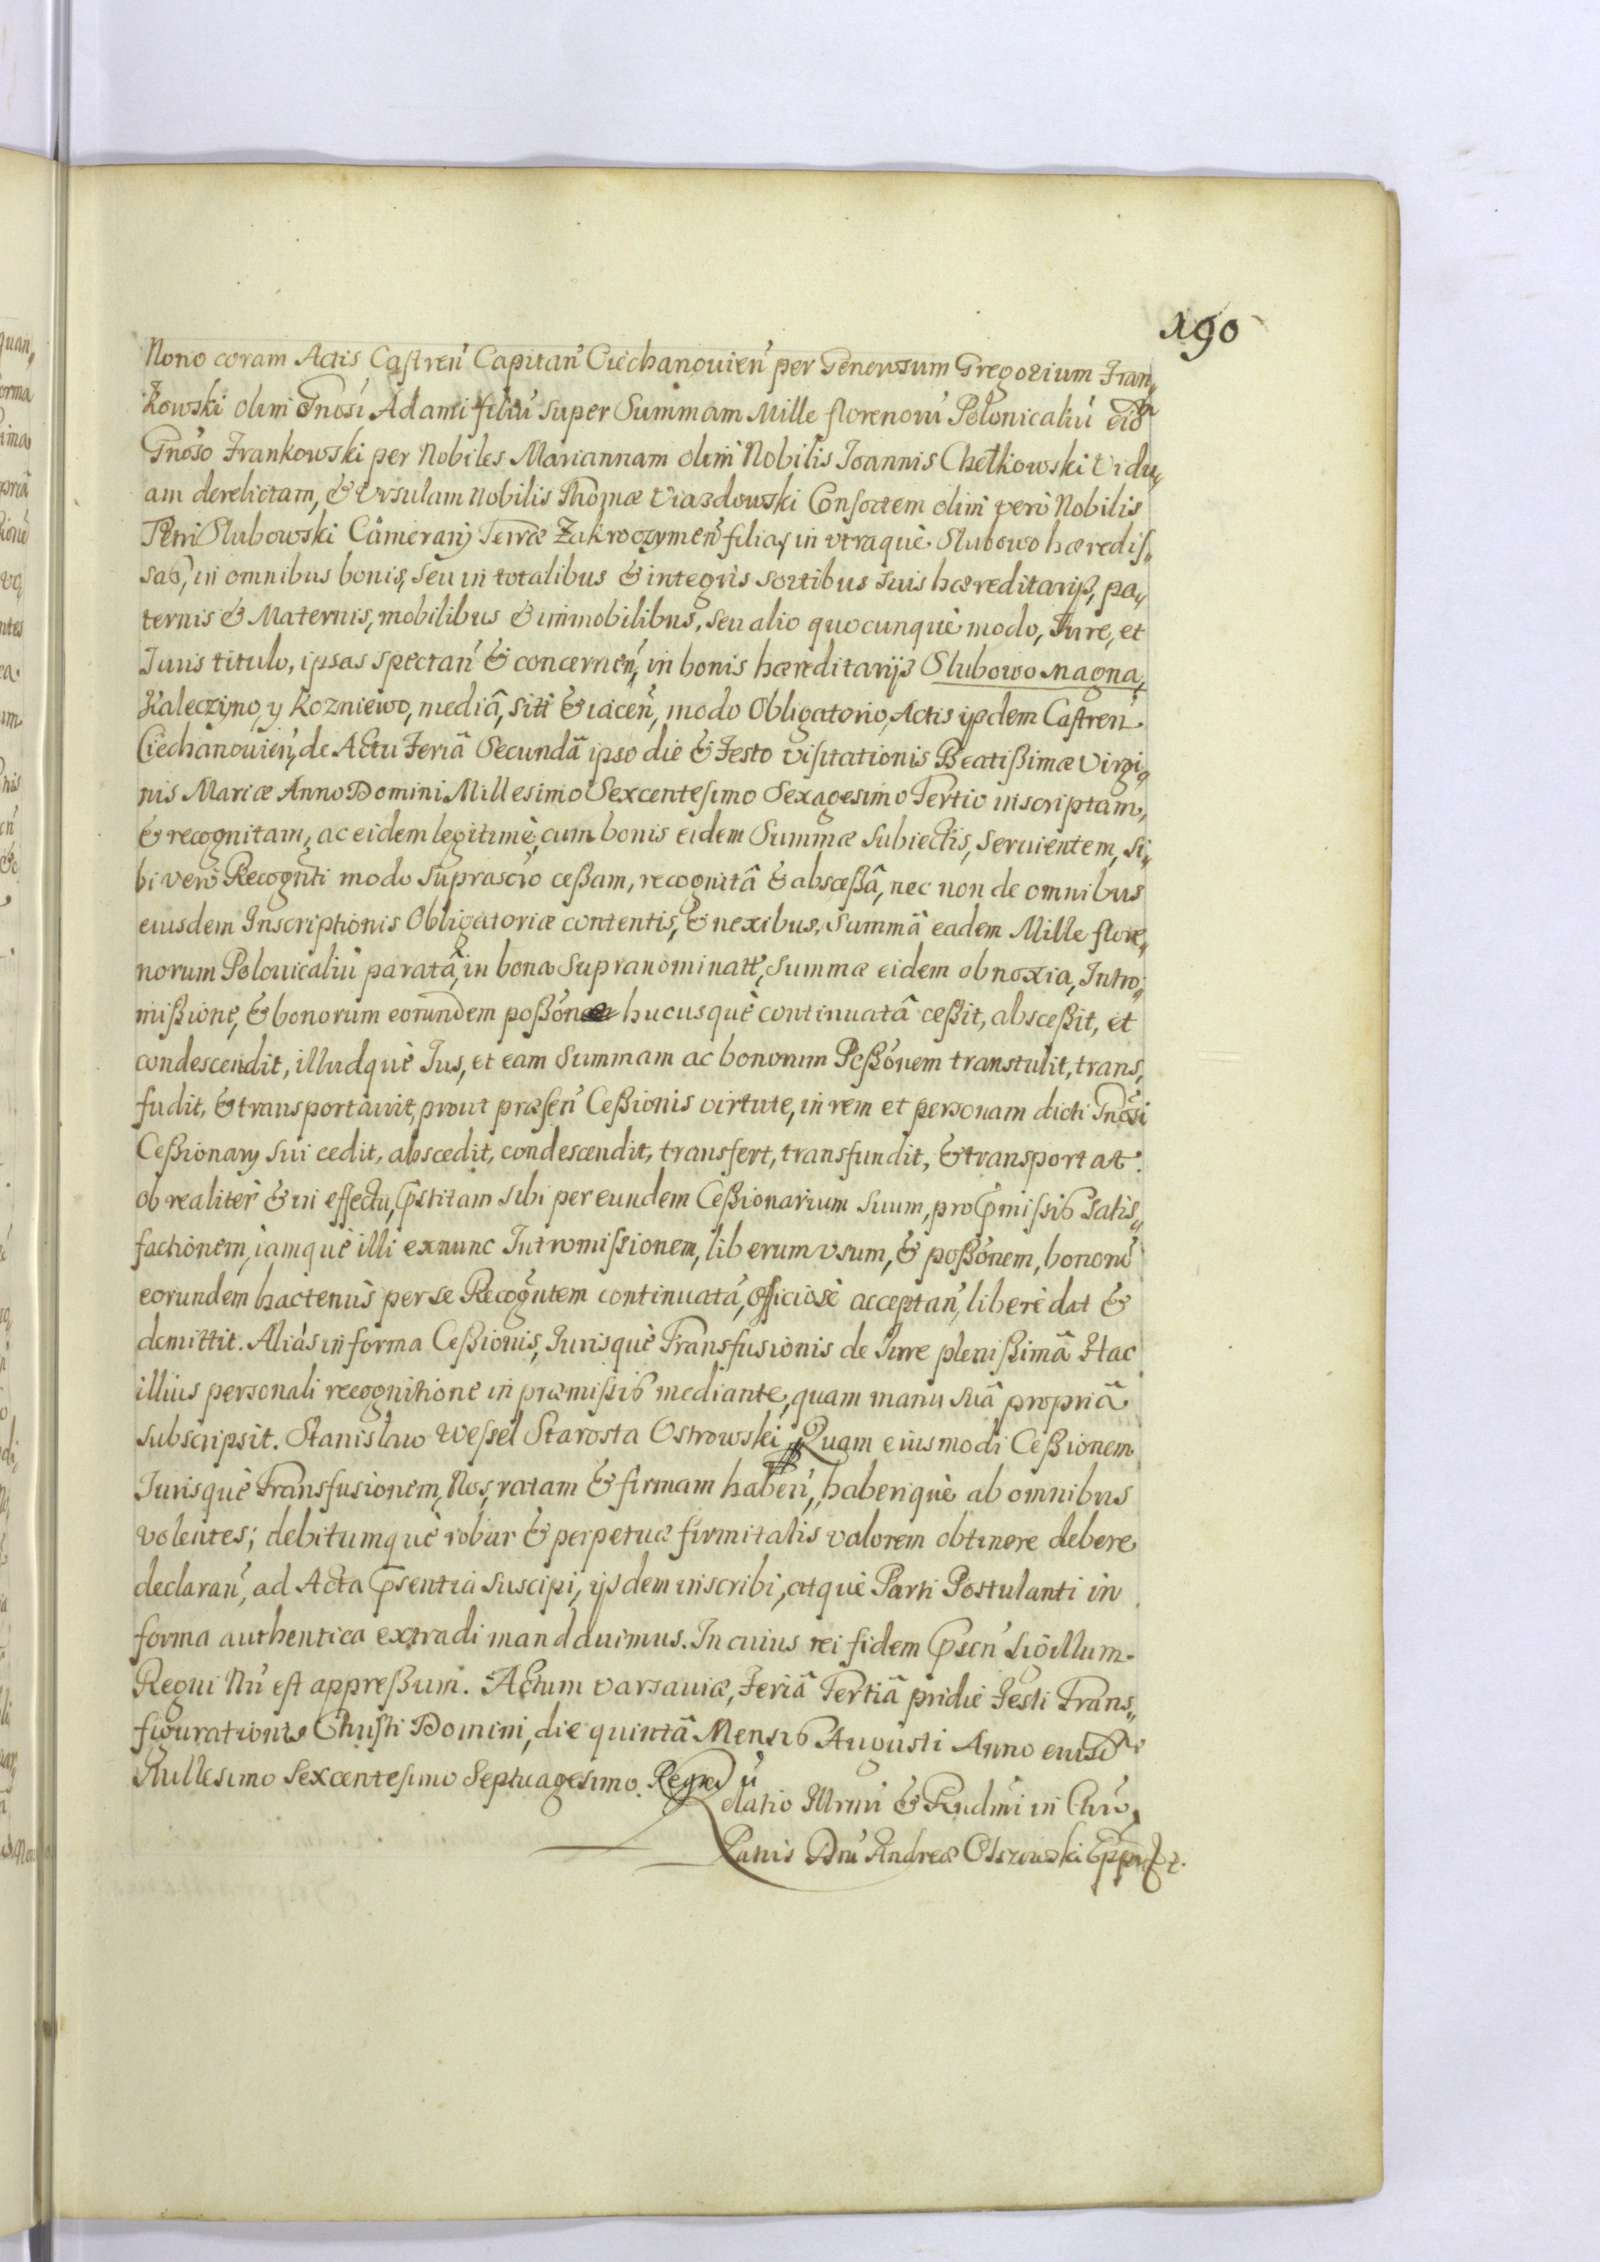 190
Nono coram Actis Castren̄ Capitan̄ Ciechanouien̄ per Generosum Gregorium Fran„
kowski olim Gnosi Adami filiū super Summam Mille florenorū Polonicaliū eid
Gnoso Frankowski per Nobiles Mariannam olim Nobilis Joannis Chełkowski Vidu„
am derelictam, & Vrsulam Nobilis Thomæ Viazdowski Consortem olim verò Nobilis
Petri Slubowski Camerarij Terræ Zakroczymen̄ filias in vtraquè Slubowo hæredis„
sas, in omnibus bonis, seu in totalibus & integris sortibus suis hæreditarijs, pa„
ternis & Maternis, mobilibus & immobilibus, seu alio quocunquè modo, Jure, et
Juris titulo, ipsas spectan̄ & concernen̄, in bonis hæreditarijs Slubowo Magna,
Kaleczyno, y Kozniewo, mediâ, siti & iacen̄, modo Obligatorio, Actis ijsdem Castren̄
Ciechanouien̄, de Actu Feriâ Secundâ ipso die & Festo Visitationis Beatißimæ Virgi„
nis Mariæ Anno Domini Millesimo Sexcentesimo Sexagesimo Tertio inscriptam,
& recognitam, ac eidem legitimè, cum bonis eidem Summæ subiectis, seruientem, si„
bi verò Recognti modo suprascrō ceßam, recognitâ & absceßâ, nec non de omnibus
eiusdem Inscriptionis Obligatoriæ contentis, & nexibus, Summâ eadem Mille flore„
norum Polonicaliū paratâ, in bona supranominatt, summæ eidem obnoxia, Intro„
mißione, & bonorum eorundem poßōne hucusquè continuatâ ceßit, absceßit, et
condescendit, illudquè Jus, et eam Summam ac bonorum Poßōnem transtulit, trans„
fudit, & transportauit, prout præsen̄ Ceßionis virtute, in rem et personam dicti Gnosi
Ceßionarij sui cedit, abscedit, condescendit, transfert, transfundit, & transportat.
ob realiter & in effectu, p̄stitam sibi per eundem Ceßionarium suum, pro p̄mißis satis„
factionem, iamquè illi exnunc Intromissionem, liberum vsum, & poßōnem, bonorū
eorundem hactenùs per se Recogñtem continuatā, officiosè acceptan̄, liberè dat &
demittit. Aliàs in forma Ceßionis, Jurisquè Transfusionis de Jure plenißimâ Hac
illius personali recognitione in præmissis mediante, quam manu suâ propriâ
subscripsit. Stanislaw Wessel Starosta Ostrowski Quam eiusmodi Ceßionem
Jurisquè Transfusionem, Nos, ratam & firmam haben̄, haberiquè ab omnibus
volentes; debitumquè robur & perpetuæ firmitatis valorem obtinere debere
declaran̄, ad Acta p̄sentia suscipi, ijsdem inscribi, atquè Parti Postulanti in
forma authentica extradi mandauimus. In cuius rei fidem p̄sen̄ Sigillum
Regni Nr̄i est appreßum. Actum Varsauiæ, Feriâ Tertiâ pridie Festi Trans„
figurationis Christi Domini, die quintâ Mensis Augusti Anno eiusd
Millesimo Sexcentesimo Septuagesimo.
Relatio Illrmi & Rndmi in Chrō
Patris Dn̄i Andreæ Olszowski